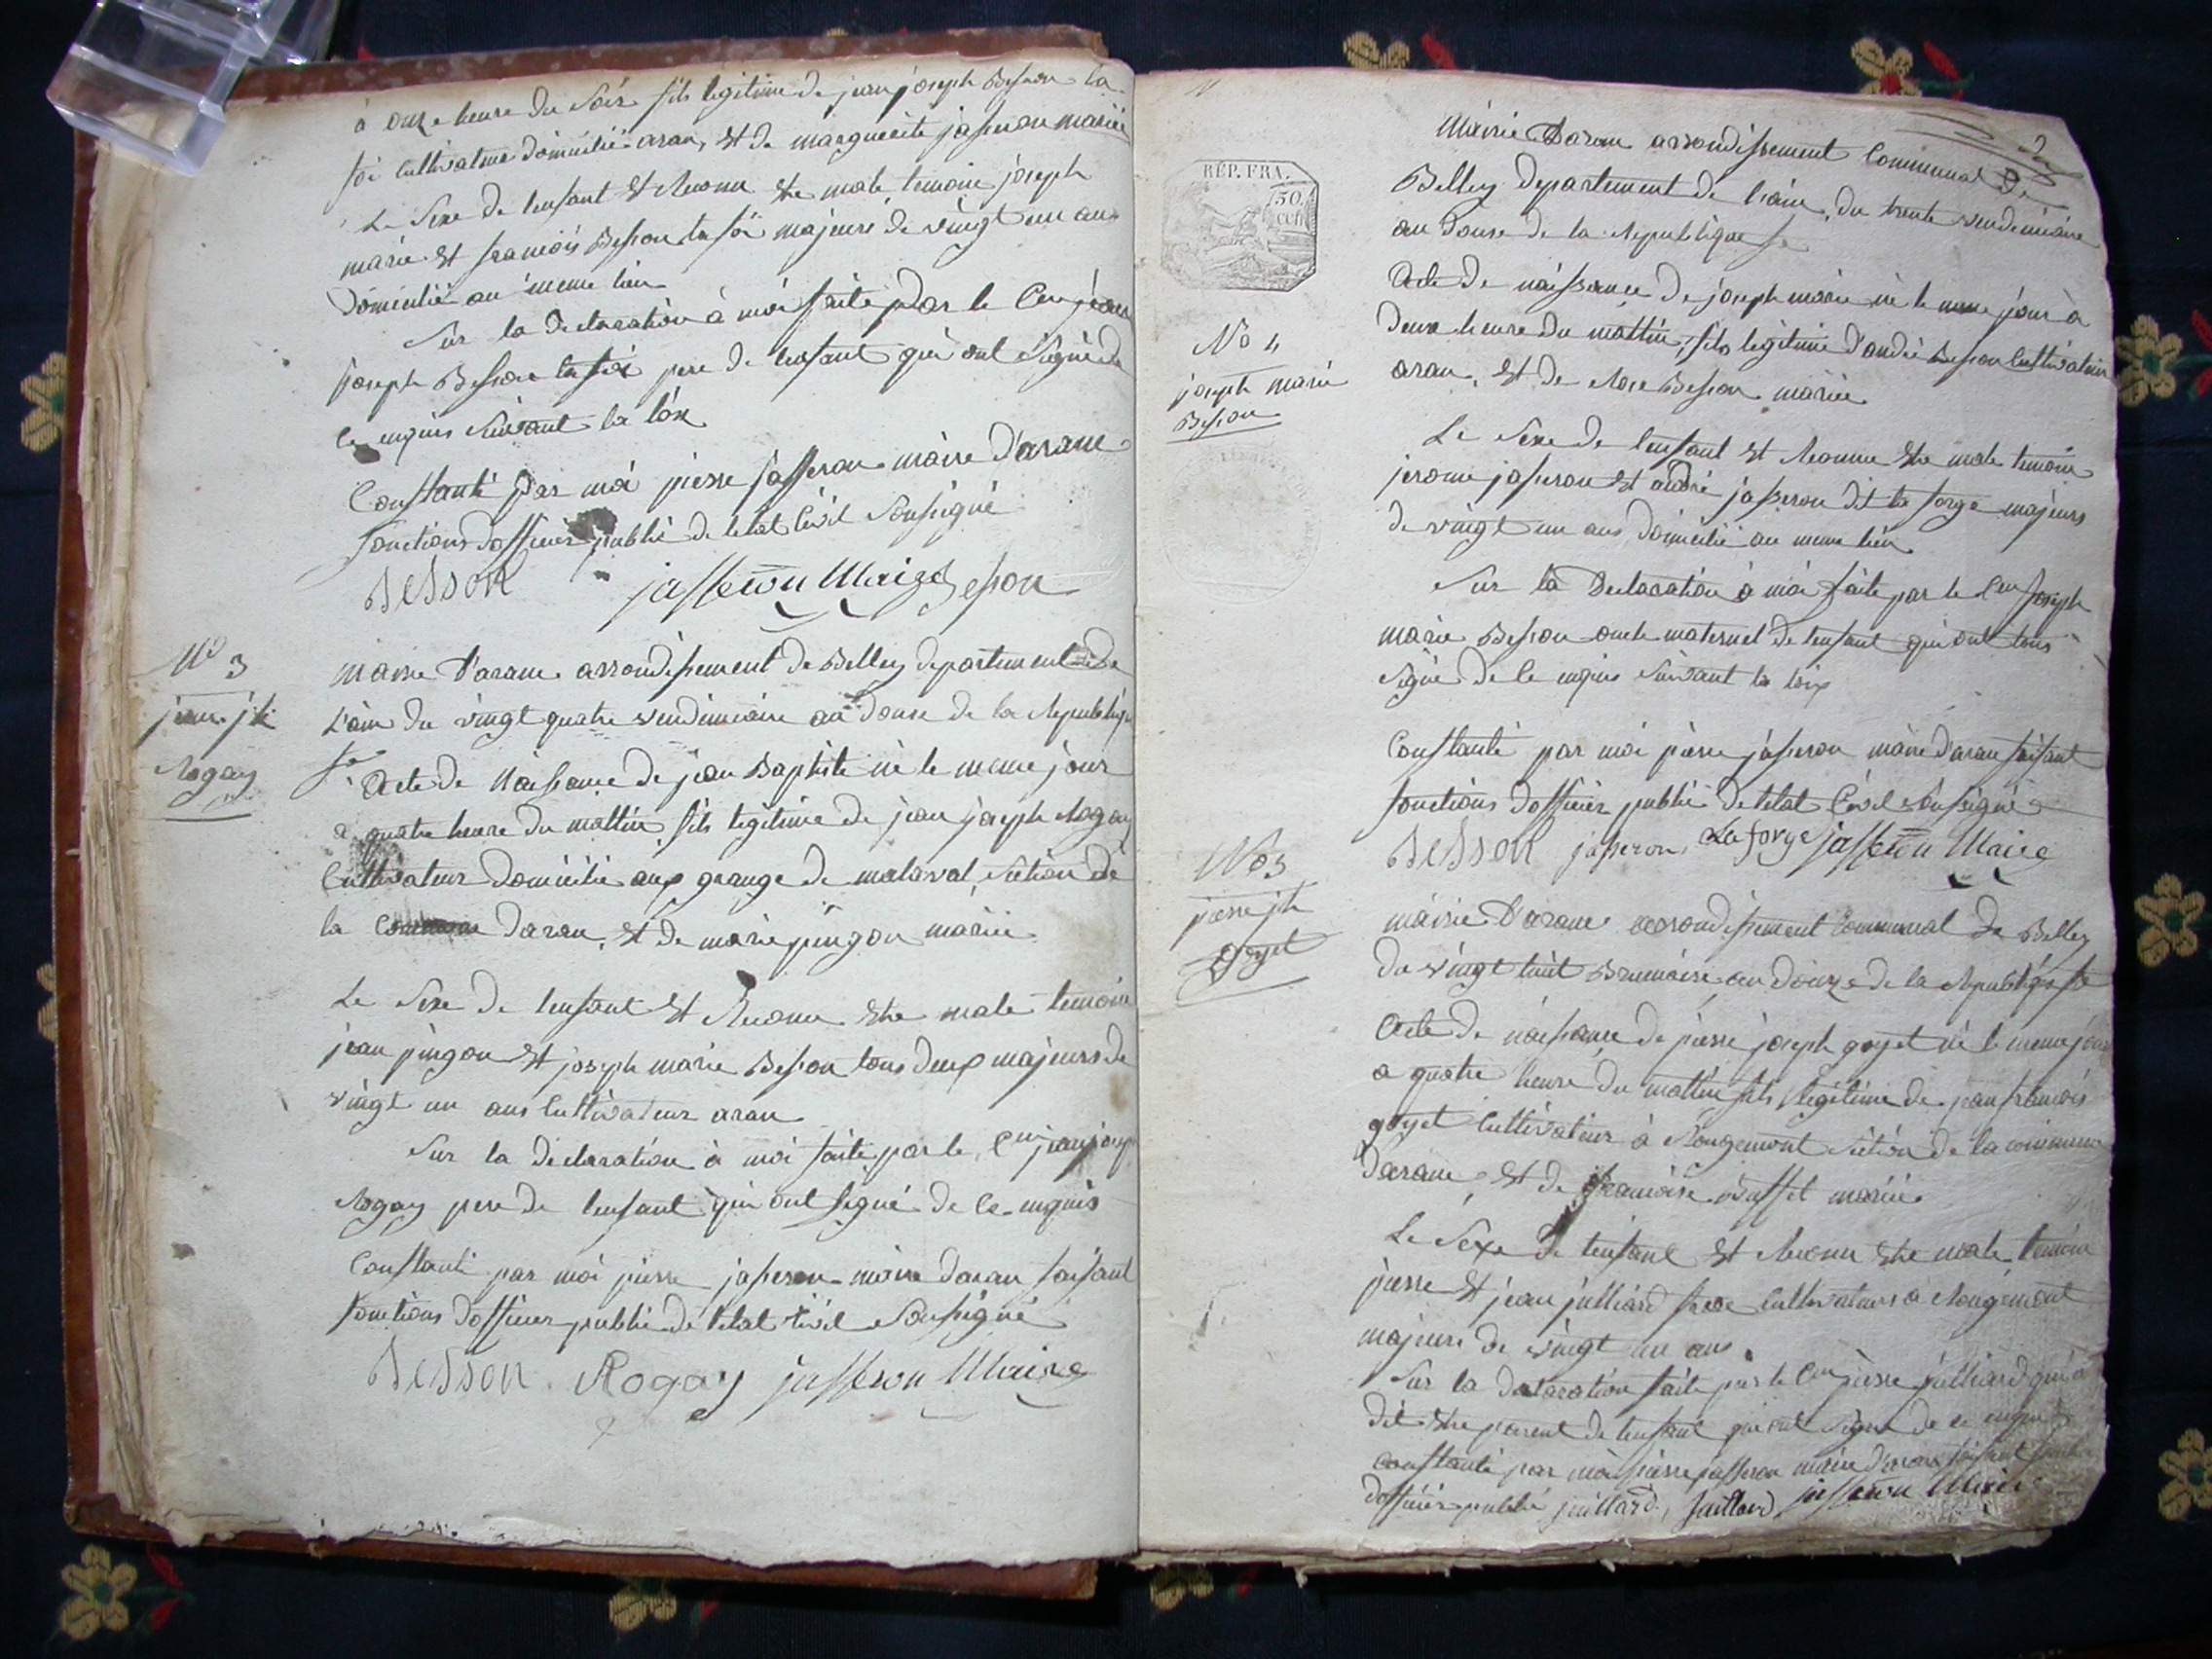 à onze heure du soir fils legitime de jean joseph Besson la
foi cultivateur domicilié aran, et de marguerite jasseron mariée
Le Sexe de lenfant est Reconnu etre male temoins joseph
marie et francois Besson la foi majeurs de vingt un ans
domicilié au meme lieu
Sur la declaration à moi faite par le Cen jean
joseph Besson la foi pere de lenfant qui ont Signé de
ce enquis suivant la loix
Constanté par moi pierre jasseron maire d'arane
fonctions dofficier public de letat Civil Sousigné
Besson jasseron Maire Besson
No 3
jean jh
Rogay
mairie D'arane arrondissement de Belley departement de
L'ain du vingt quatre vendemiaire an douse de la Republique
fse
Acte de Naissance de jean Baptiste né le meme jour
a quatre heure du mattin fils legitime de jean joseph Rogay
Cultivateur domicilié aux grange de malaval, Section de
la Commune daran, et de marie pingon mariée
Le Sexe de lenfant est Reconu etre male temoins
jean pingon et joseph marie Besson tous deux majeurs de
vingt un ans Cultivateur aran
Sur la declaration à moi faite par le Cen jean joseph
Rogay pere de lenfant qui ont signé de ce enquis
Constanté par moi pierre jasseron maire daran faisant
fonctions dofficier public de letat Civil Sousigné
Besson Rogay jasseron Maire
Mairie Darane arrondissement Communal De
Belley departement de l'ain, du trente vendemiaire
an Douse de la Republique fse
REP. FRA.
50
cen
No 4
joseph marie
Besson
Acte de naissance de joseph marie né le meme jour à
deux heure du mattin, fils legitime d'andré Besson Cultivateur
aran, et de Rose Besson mariée
Le Sexe de lenfant est Reconnu etre male temoins
jerome jasseron et andré jasseron dit la forge majeurs
de vingt un ans, domicilié au meme lieu
Sur la Declaration à moi faite par le Cen Joseph
marie Besson oncle maternel de lenfant qui ont tous
Signé de ce enquis Suivant la loix
Constanté par moi pierre jasseron maire d'aran faisant
fonctions dofficier public de letat Civil sousigné
Besson jasseron La forge jasseron Maire
No 5
pierre jh
goyet
mairie Darane arrondissement communal de Belley
du vingt huit Brumaire an Douze de la Republique fse
Acte de naissance de pierre joseph goyet né le meme jour
a quatre heure du mattin fils legitime de jean francois
goyet Cultivateur à Rougemont Section de la commune
Darane, et de francoise Buffet mariée
Le Sexe de lenfant est Reconu etre male temoins
pierre et jean juilliard frere Cultivateurs a Rougemont
majeurs de vingt un ans
Sur la declaration faite par le Cen pierre juilliard qui a
dit etre parent de lenfant qui ont signé de ce enquis
constanté par moi pierre jasseron maire d'aran faisant
dofficier public juillard, juillard, jasseron Maire